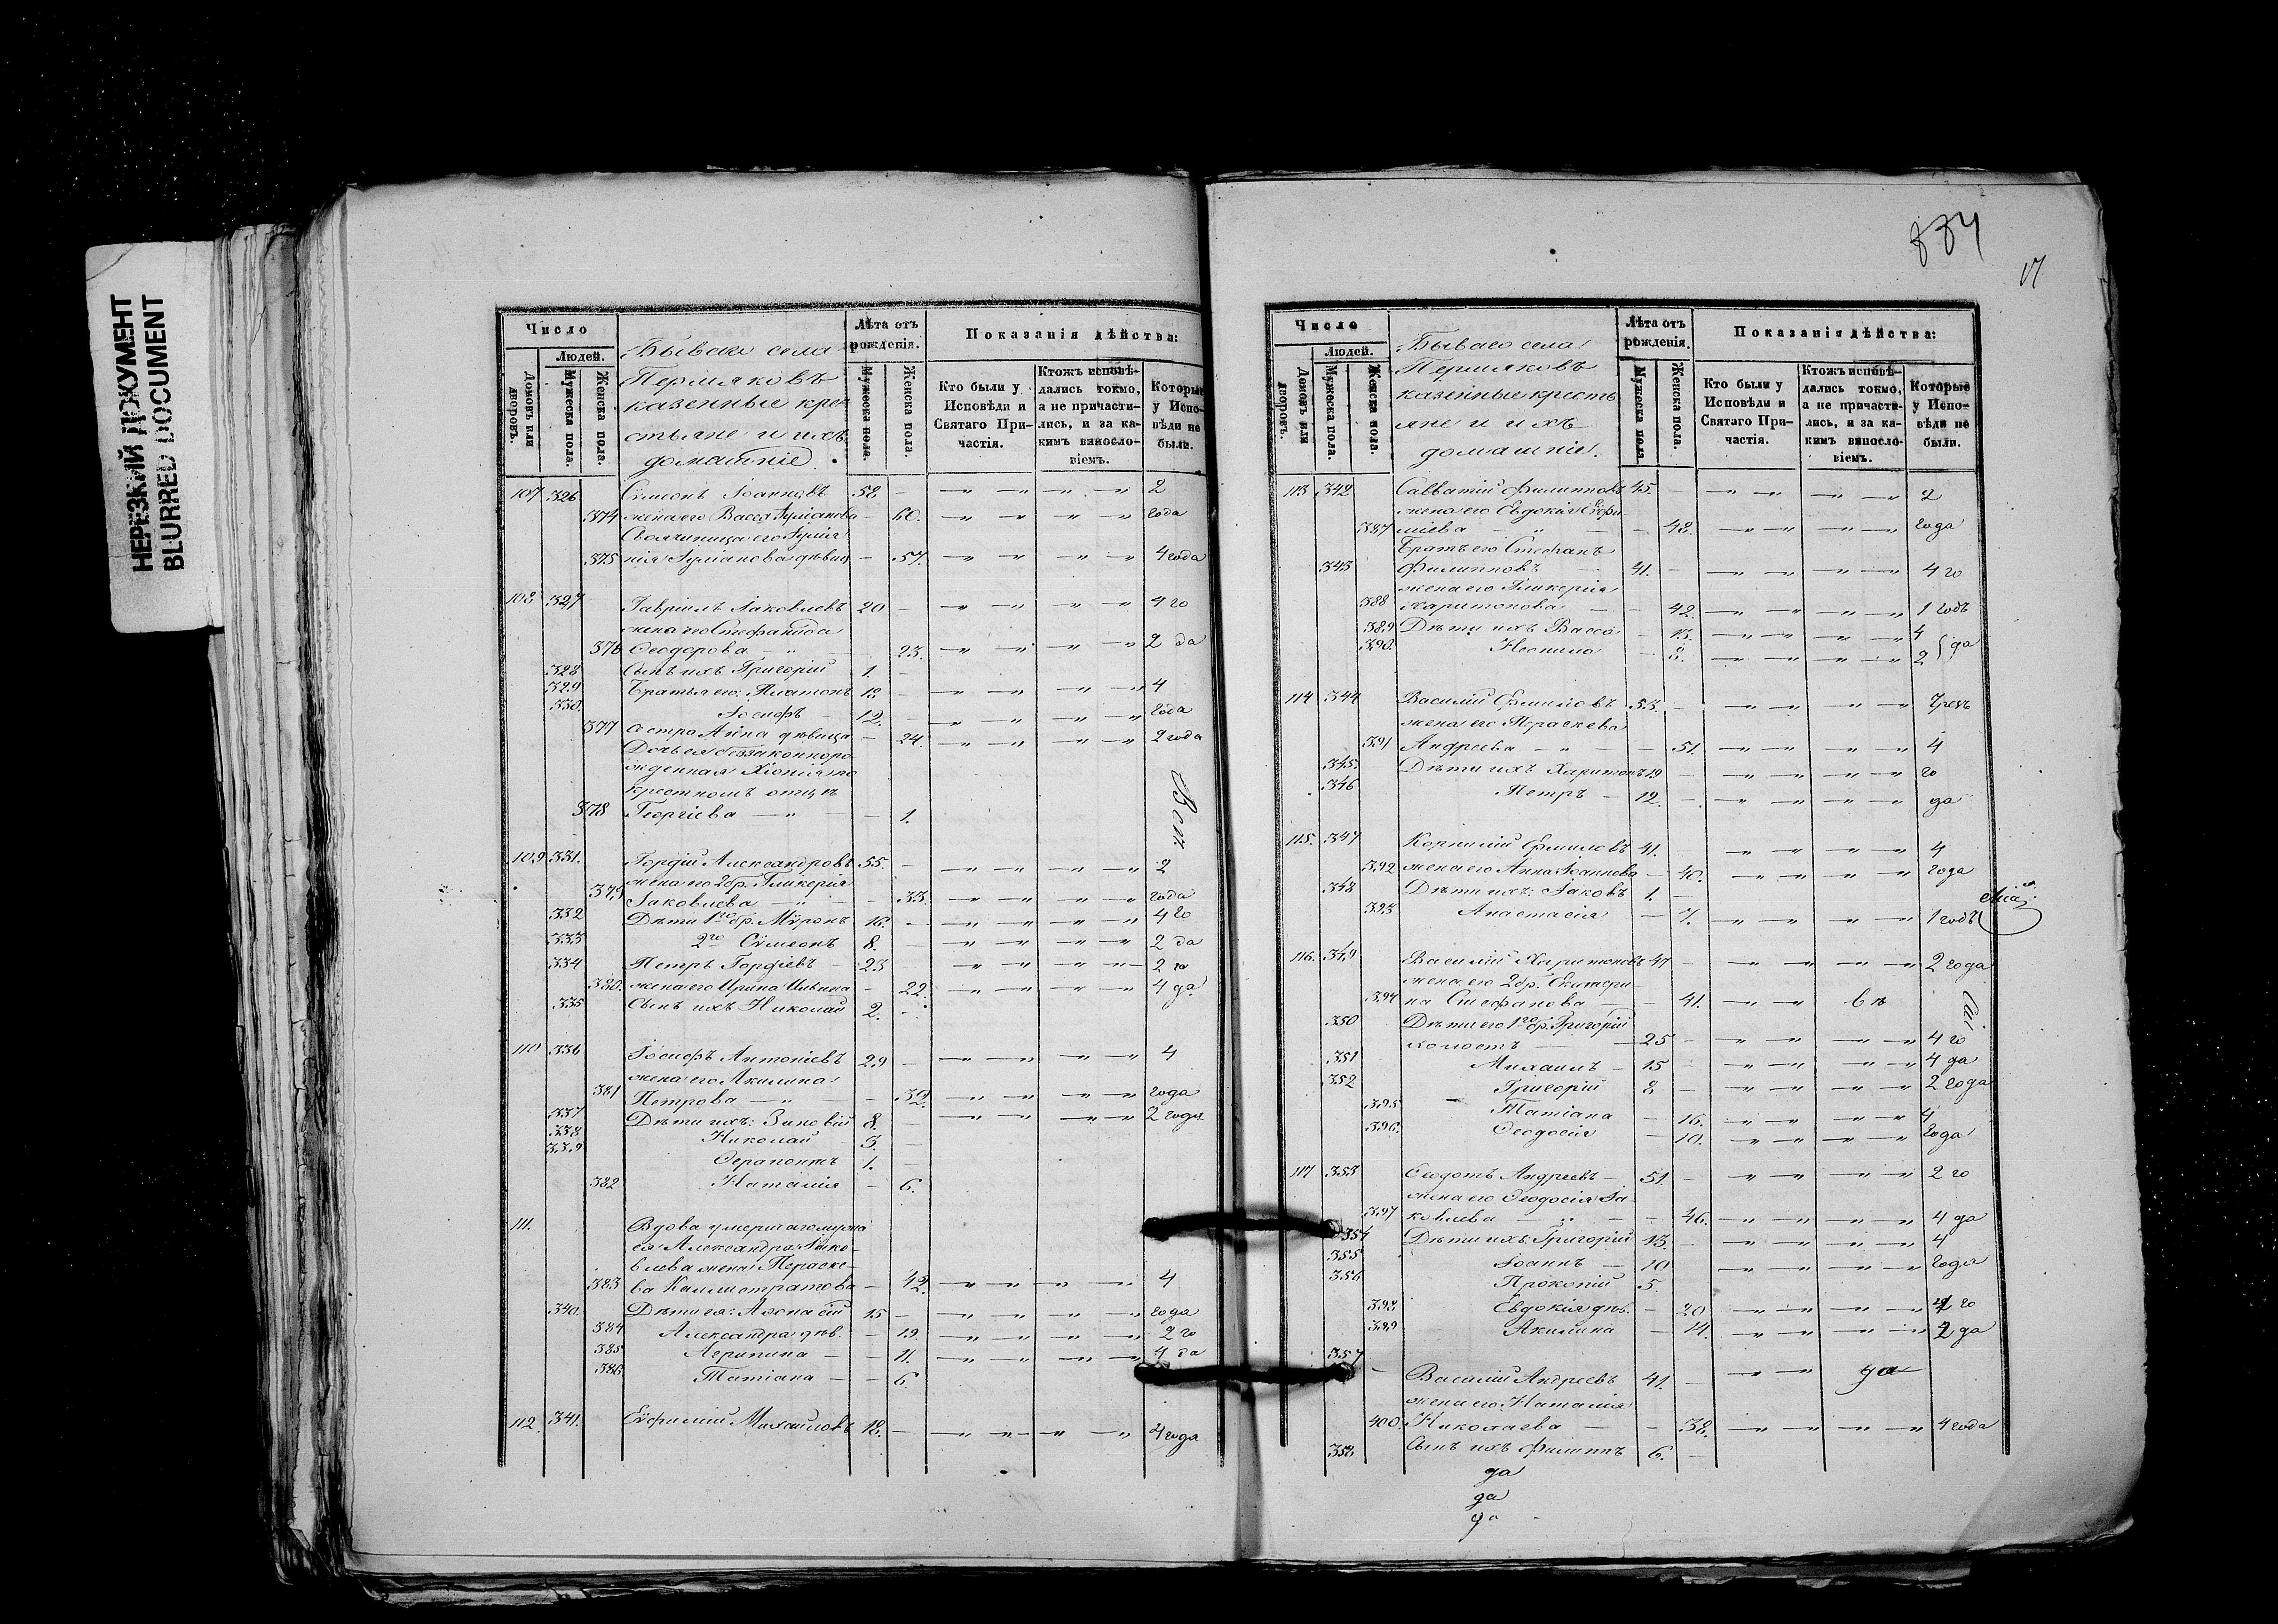 НЕРЕЗКИЙ ДОКУМЕНТ
BLURRED DOCUMENT
Число
Людей.
Домовъ или дворовъ.
Мужеска пола.
Женска пола.
Бываго села
Пермяковъ
казенные кре-
стьяне и ихъ
домашніе.
Лѣта отъ рожденія.
Мужеска пола.
Женска пола.
Показанія дѣйства:
Кто были у Исповѣди и Святаго Причастія.
Ктожъ исповѣдались токмо, а не причастились, и за какимъ винословіемъ.
Которые у Исповѣди не были.
107 326 Сѵмеонъ Іоанновъ 58 – 2
374 жена его Васса – 60. года
Своячиница его
375 дѣвиц – 57. 4 года
108 327 Гавріилъ Іаковлевъ 20 – 4 го
жена его Стефанида
376 Ѳеодорова – 23. 2 да
328 Сынъ ихъ Григорій 1. –
329 Братья его: Платонъ 18 – 4
330. Іосифъ 12. – года
377 сестра Анна дѣвица – 24. 2 года
Дочь ея беззаконноро-
жденная Хіонія по
крестномъ отцѣ
378 Георгіева – 1.
109 331. Гордій Александровъ 55. – 2
жена его 2 бр. Гликерія
379 Іаковлева – 33. года
332 Дѣти 1го бр. Мѵронъ 16. – 4 го
333 2го Сѵмеонъ 8. – 2 да
334 Петръ Гордіевъ – 23 – 2 го
380. жена его Ирина – 22. 4 да
335 Сынъ ихъ Николай 2. –
110 336 Іосифъ Антоніевъ 29 – 4
жена его Акилина
381 Петрова – года
337 Дѣти ихъ: Зиновій 8. – 2 года
338 Николай –
339 Ѳерапонтъ 1. –
382 Наталія – 6.
111. Вдова умершаго
Александра Іако-
влева жена Параске-
383 ва Каллистратова – 42. 4
340. Дѣти ея: Аѳанасій 15 – года
384 Александра дѣв. – 19. 2 го
385 Агрипина – 11. 4 да
386 Татіана – 6.
112. 341. Еѵфимій Михаиловъ 18. – 4 года
834
17
Число
Людей.
Домовъ или дворовъ.
Мужеска пола.
Женска пола.
Бываго села
Пермяковъ
казенные кресть
яне и ихъ
домашніе.
Лѣта отъ рожденія.
Мужеска пола.
Женска пола.
Показанія дѣйства:
Кто были у Исповѣди и Святаго Причастія.
Ктожъ исповѣдались токмо, а не причастились, и за какимъ винословіемъ.
Которые у Исповѣди не были.
113 342 Савватій Филипповъ 45. – 2
жена его Евдокія
387 – 48. года
Братъ его Стефанъ
343 Филипповъ 41. – 4 го
жена его Гликерія
388 Харитонова – 42. 1 годъ
389 Дѣти ихъ Васса – 13. 4
390. Неонила – 8. 2 да
114 344 Василій 53. –
жена его Параскева
391 Андреева – 51. 4
345. Дѣти ихъ Харитонъ 19 – го
346 Петръ – 12. – да
115. 347 Корнилій 41. 4
392 жена его Анна Іоаннова – 40. года
348 Дѣти ихъ: Іаковъ 1. –
393 Анастасія – 7. 1 годъ
116. 349 Василій Харитоновъ 47 – 2 года
жена его 2 бр. Екатери-
394 на Стефанова – 41.
350 Дѣти его 1го бр. Григорій
холостъ – 25 – 4 го
351 Михаилъ – 15 – 4 да
352 Григорій 8 – 2 года
395 Татіана – 16. 4
396. Ѳеодосія – 10. года
117 353 Ѳеодотъ Андреевъ – 51. – 2 го
жена его Ѳеодосія Іа-
397 ковлева – 46. 4 да
354 Дѣти ихъ Григорій 13. – 4
355 Іоаннъ – 10 года
356 Прокопій 5.
398 Евдокія дѣв. – 20 го
399 Акилина – 14. да
357 Василій Андреевъ 41. – да
жена его Наталія
400. Николаева – 38. 4 года
358 Сынъ ихъ Филиппъ 6. –
да
да
да